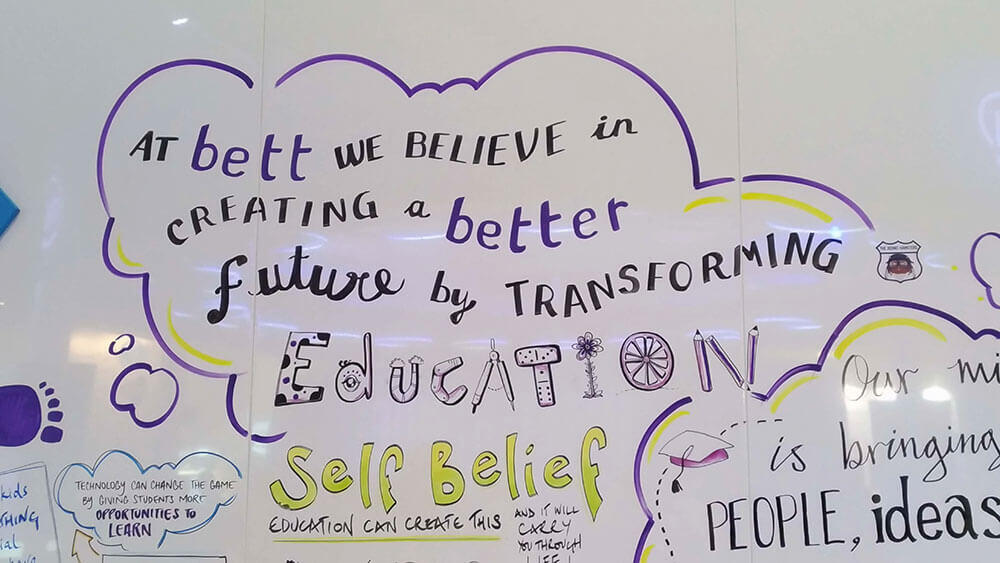 AT bett WE BELIEVE in
CREATING a better
future by TRANSFORMING
EDUCATION
Self Belief
EDUCATION CAN CREATE THIS
AND IT WILL
CARRY
YOU THROUGH
LIFE!
TECHNOLOGY CAN CHANGE THE GAME
BY GIVING STUDENTS MORE
OPPORTUNITIES TO
LEARN
kids
Our mi
is bringing
PEOPLE, ideas